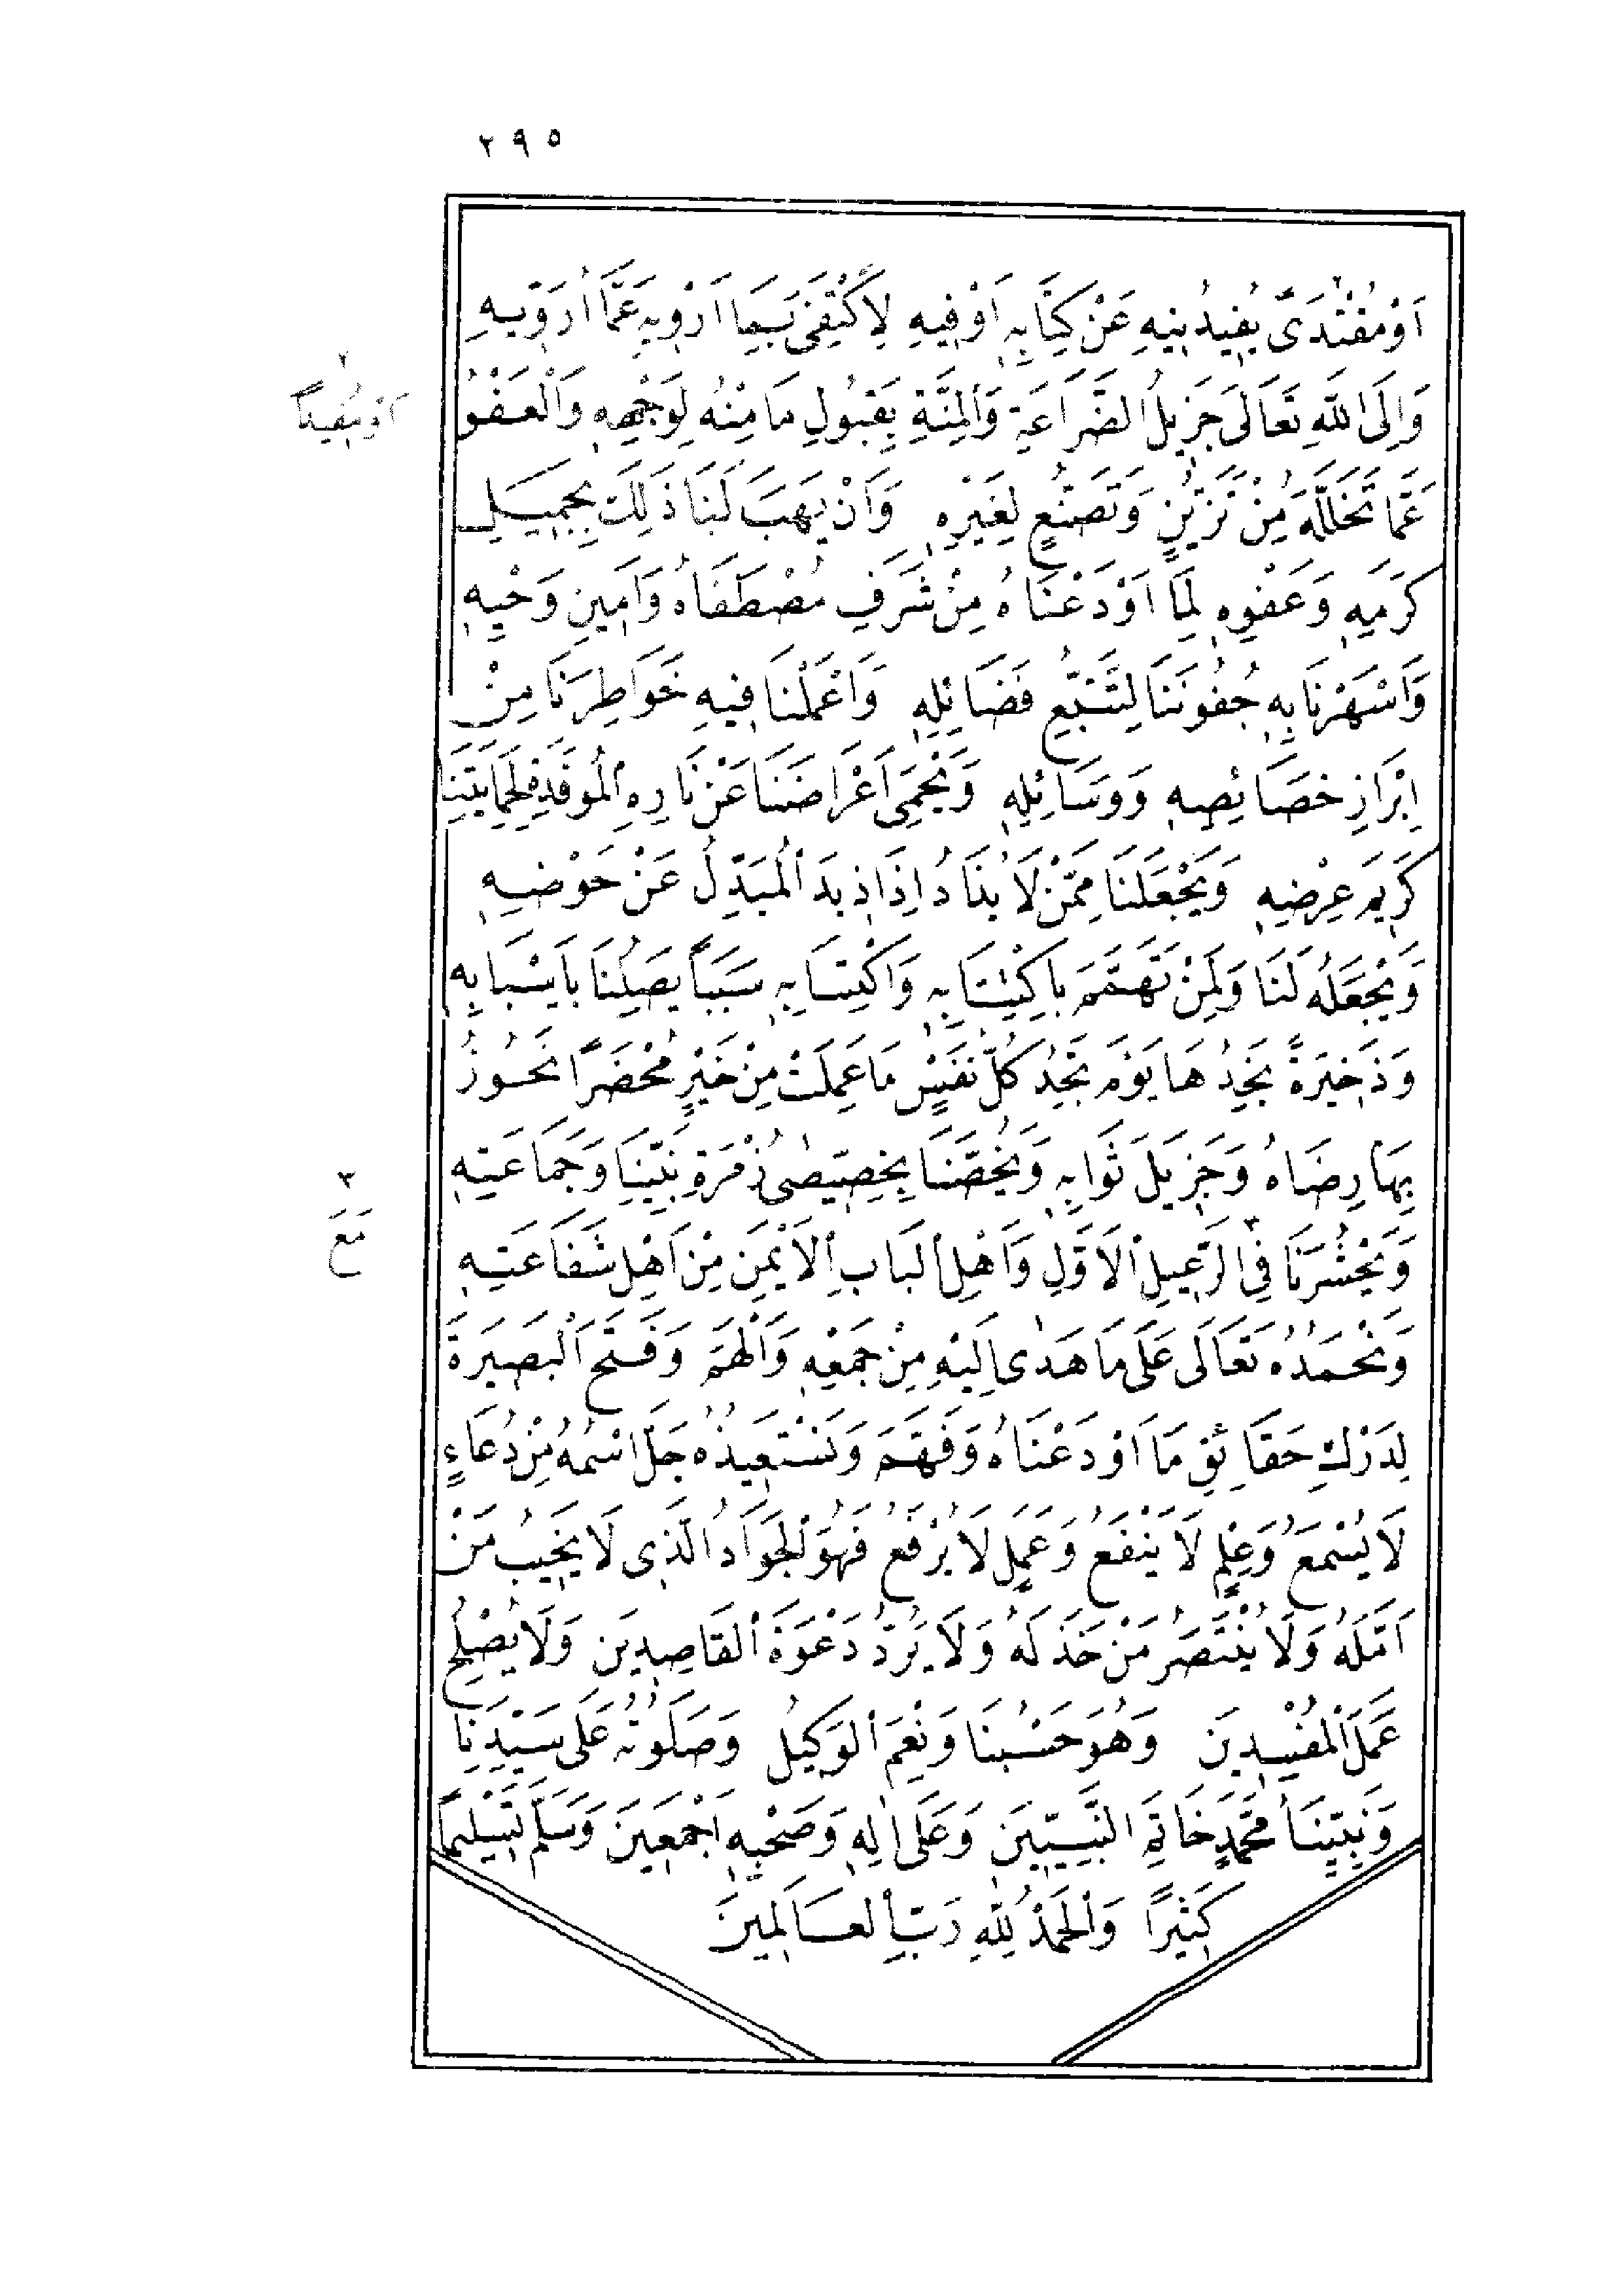 ٢٩٥
اَوْ مُقْتَدًى يُفِيدُنِيهِ عَنْ كِتَابِهِ اَوْ فِيهِ لَاكْتَفَى بِمَا اَرْوِيهِ عَمَّا اُرَوِّيهِ
وَاِلَى اللّٰهِ تَعَالَى جَزِيلُ الضَّرَاعَةِ وَالْمِنَّةِ بِقَبُولِ مَا مِنْهُ لِوَجْهِهِ وَالْعَفْوُ
عَمَّا تَخَلَّلَهُ مِنْ تَزَيُّنٍ وَتَصَنُّعٍ لِغَيْرِهِ وَاَنْ يَهَبَ لَنَا ذَلِكَ بِجَمِيلِ
كَرَمِهِ وَعَفْوِهِ لِمَا اَوْدَعْنَاهُ مِنْ شَرَفِ مُصْطَفَاهُ وَاَمِينِ وَحْيِهِ
وَاَسْهَرْنَا بِهِ جُفُونَنَا لِتَتَبُّعِ فَضَائِلِهِ وَاَعْمَلْنَا فِيهِ خَوَاطِرَنَا مِنْ
اِبْرَازِ خَصَائِصِهِ وَوَسَائِلِهِ وَيَحْمِيَ اَعْرَاضَنَا عَنْ نَارِهِ الْمُوقَدَةِ لِحِمَايَتِنَا
كَرِيمَ عِرْضِهِ وَيَجْعَلَنَا مِمَّنْ لَا يُذَادُ اِذَا ذِيدَ الْمُبَدِّلُ عَنْ حَوْضِهِ
وَيَجْعَلَهُ لَنَا وَلِمَنْ تَهَمَّمَ بِاكْتِتَابِهِ وَاكْتِسَابِهِ سَبَبًا يَصِلُنَا بِاَسْبَابِهِ
وَذَخِيرَةً نَجِدُهَا يَوْمَ تَجِدُ كُلُّ نَفْسٍ مَا عَمِلَتْ مِنْ خَيْرٍ مُحْضَرًا نَحُوزُ
بِهَا رِضَاهُ وَجَزِيلَ ثَوَابِهِ وَيَخُصَّنَا بِخِصِّيصَى زُمْرَةِ نَبِيِّنَا وَجَمَاعَتِهِ
وَيَحْشُرَنَا فِي الرَّعِيلِ الْاَوَّلِ وَاَهْلِ الْبَابِ الْاَيْمَنِ مِنْ اَهْلِ شَفَاعَتِهِ
وَنَحْمَدُهُ تَعَالَى عَلَى مَا هَدٰى اِلَيْهِ مِنْ جَمْعِهِ وَاَلْهَمَ وَفَتَحَ الْبَصِيرَةَ
لِدَرْكِ حَقَائِقِ مَا اَوْدَعْنَاهُ وَفَهَّمَ وَنَسْتَعِيذُهُ جَلَّ اسْمُهُ مِنْ دُعَاءٍ
لَا يُسْمَعُ وَعِلْمٍ لَا يَنْفَعُ وَعَمَلٍ لَا يُرْفَعُ فَهُوَ الْجَوَادُ الَّذِى لَا يَخِيبُ مَنْ
اَمَّلَهُ وَلَا يُنْتَصَرُ مَنْ خَذَلَهُ وَلَا يَرُدُّ دَعْوَةَ الْقَاصِدِينَ وَلَا يُصْلِحُ
عَمَلَ الْمُفْسِدِينَ وَهُوَ حَسْبُنَا وَنِعْمَ الْوَكِيلُ وَصَلَوٰتُهُ عَلَى سَيِّدِنَا
وَنَبِيِّنَا مُحَمَّدٍ خَاتَمِ النَّبِيِّينَ وَعَلَى اٰلِهِ وَصَحْبِهِ اَجْمَعِينَ وَسَلَّمَ تَسْلِيمًا
كَثِيرًا وَالْحَمْدُ لِلّٰهِ رَبِّ الْعَالَمِينَ
٢
اَوْ مُفِيدًا
٣
مَعَ